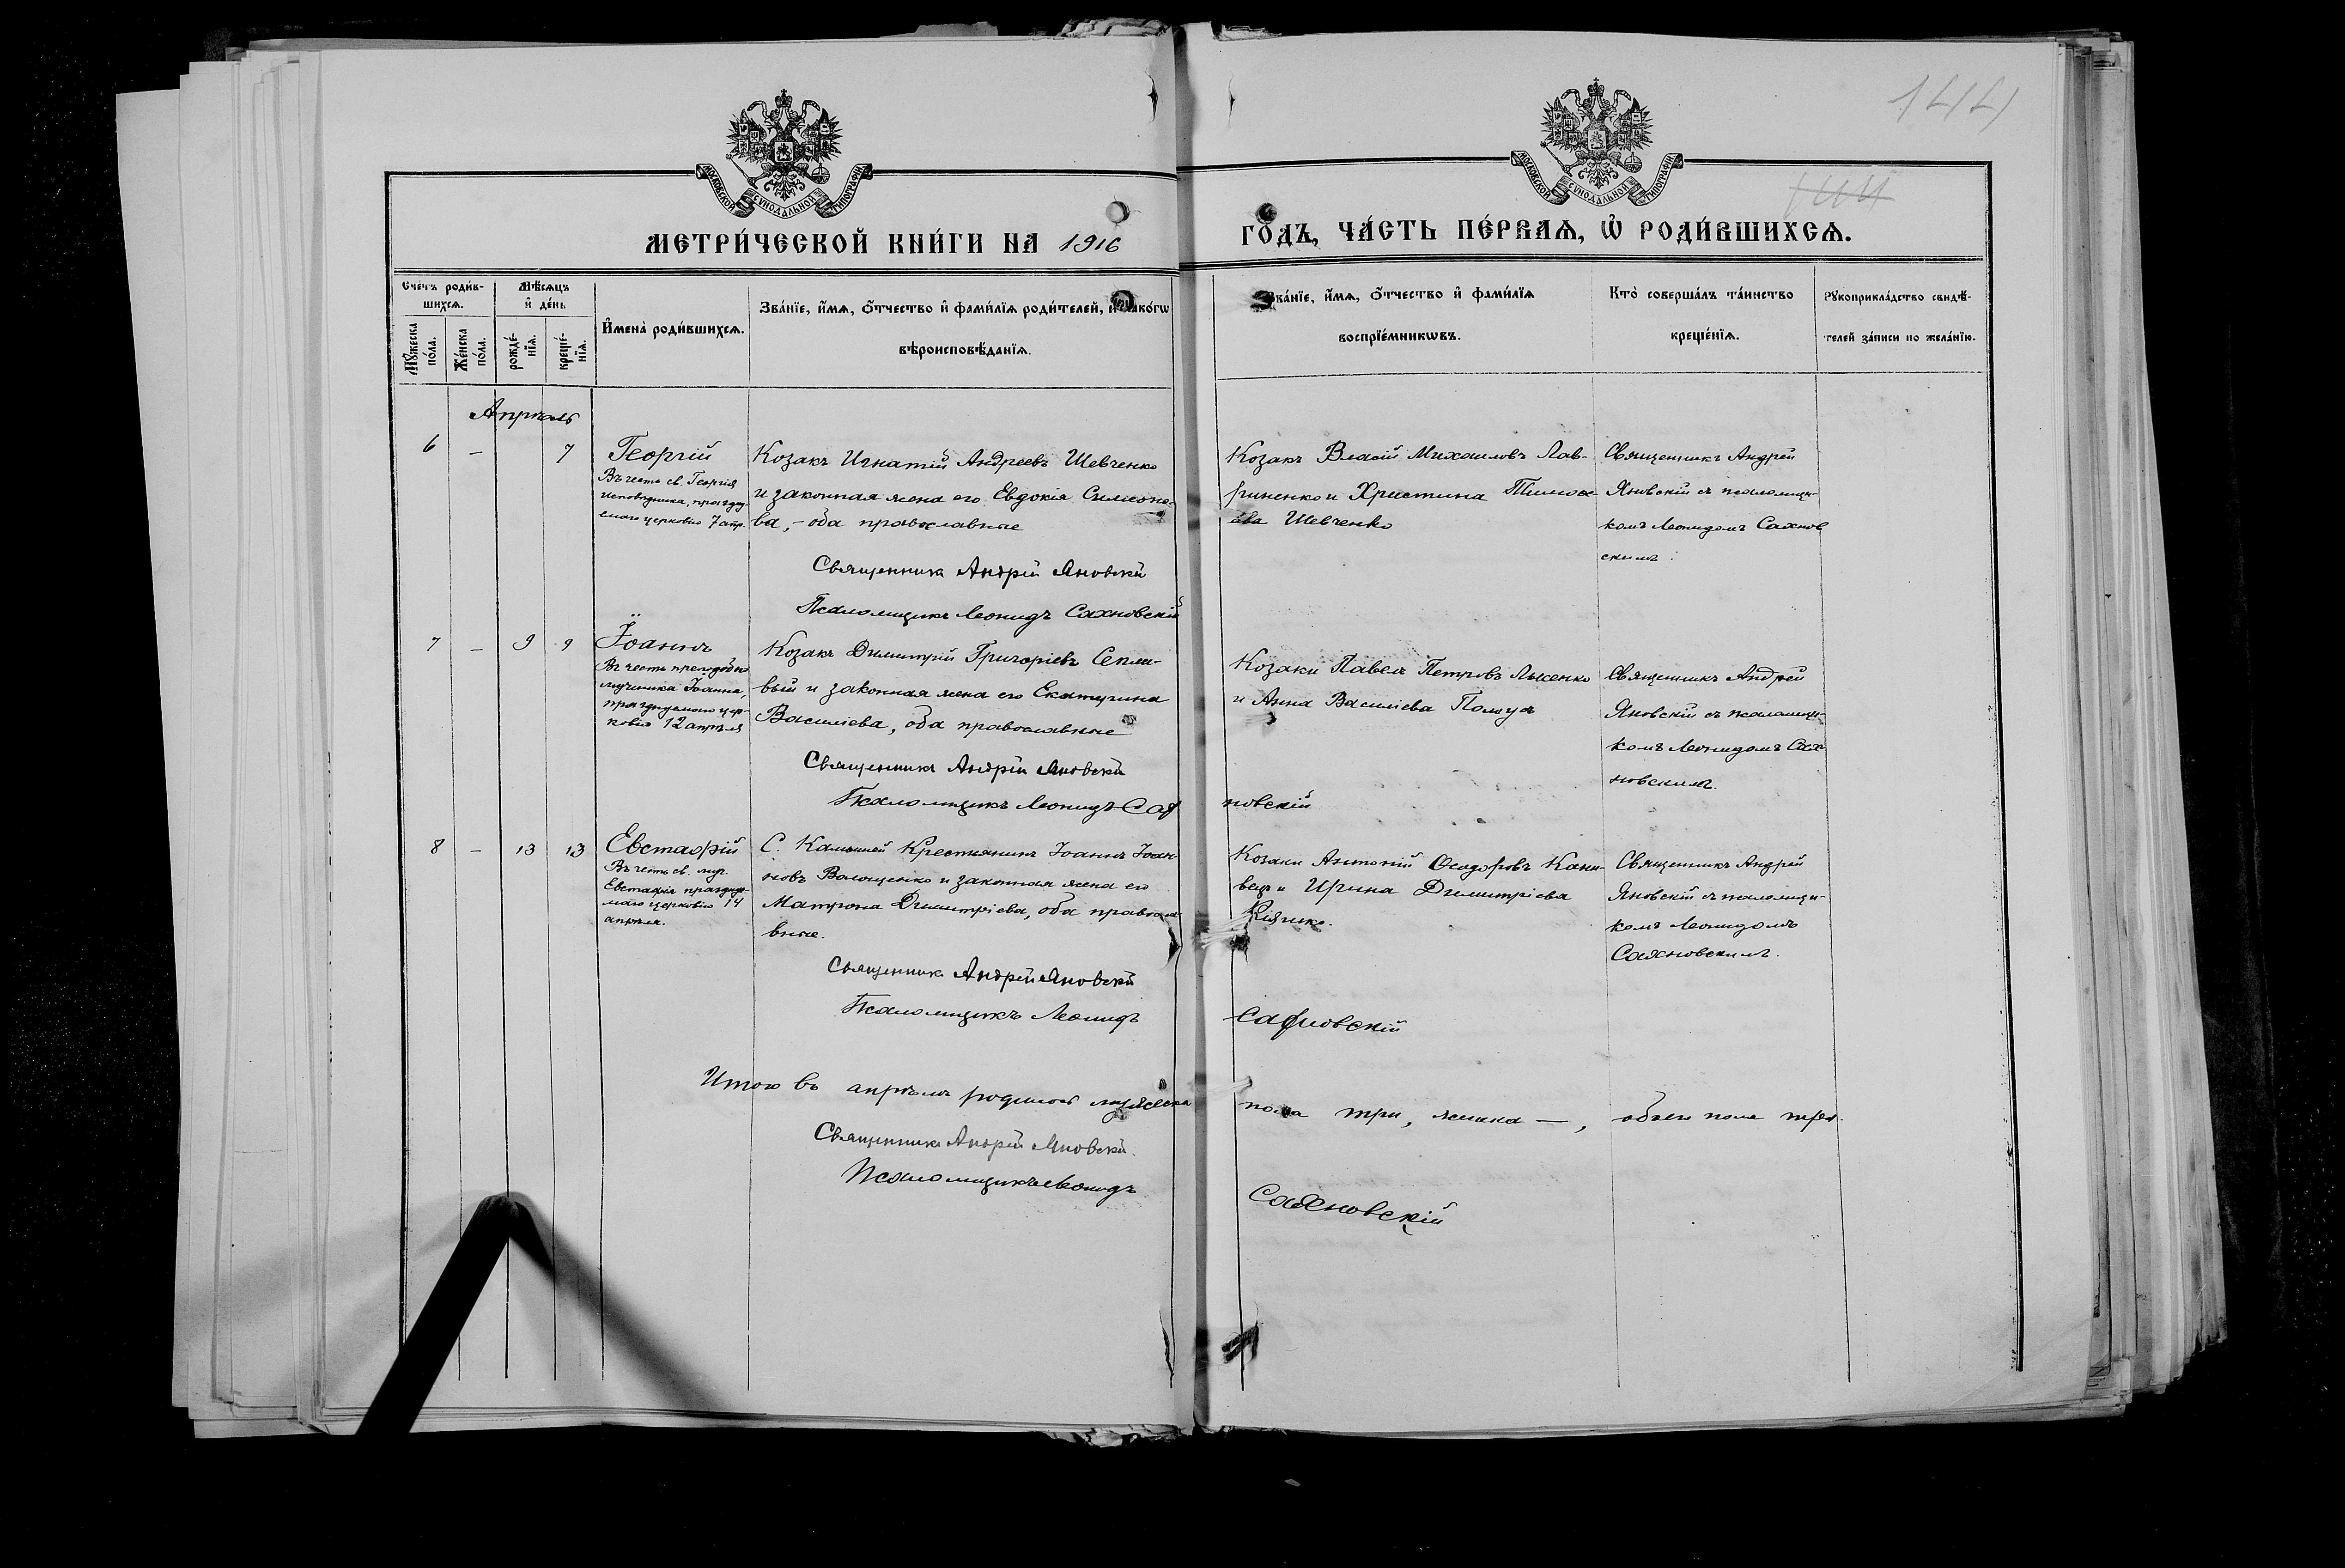 144
144
МОСКОВСКОЙ СѴНОДАЛЬНОЙ ТИПОГРАФІИ
МОСКОВСКОЙ СѴНОДАЛЬНОЙ ТИПОГРАФІИ
МЕТРИ́ЧЕСКОЙ КНИ́ГИ НА 1916
ГО́ДЪ, ЧА́СТЬ ПЕ́РВАѦ, Ѡ҆ РОДИ́ВШИХСѦ.
Сче́тъ роди́в-
шихсѧ.
Мꙋ́жеска
по́ла.
Же́нска
по́ла.
Мѣ́сѧцъ
и҆ де́нь
рожде́-
нїѧ.
креще́-
нїѧ.
И҆мена̀ роди́вшихсѧ.
Зва́нїе, и҆́мѧ, ѻ҆́тчество и҆ фами́лїѧ роди́телей, и҆ како́гѡ
вѣроисповѣ́данїѧ.
Зва́нїе, и҆́мѧ, ѻ҆́тчество и҆ фами́лїѧ
воспрїе́мникѡвъ.
Кто̀ соверша́лъ та́инство
креще́нїѧ.
Рꙋкоприкла́дство свидѣ́-
телей за́писи по жела́нїю.
Апрѣль
6 — 7
Георгій
Въ честь св. Георгія
исповѣдника, праздну-
емаго церковію 7 апр.
Козакъ Игнатій Андреевъ Шевченко
и законная жена его Евдокія Симеоно-
ва, – оба православные
Священникъ Андрей Яновскій
Псаломщикъ Леонидъ Сахновскій
Козакъ Власій Михаиловъ Лав-
риненко и Христина Тимоѳе-
ева Шевченко
Священникъ Андрей
Яновскій съ псаломщи-
комъ Леонидомъ Сахнов
скимъ.
7 — 9 9
Іоаннъ
Въ честь преподобно
мученика Іоанна,
празднуемаго цер-
ковію 12 апрѣля
Козакъ Димитрій Григоріевъ
вый и законная жена его Екатерина
Василіева, оба православные
Священникъ Андрей Яновскій
Псаломщикъ Леонидъ Сах
новскій
Козаки Павелъ Петровъ Лысенко
и Анна Василіева
Священникъ Андрей
Яновскій съ псаломщи-
комъ Леонидомъ Сах
новскимъ.
8 — 13 13
Евстафій
Въ честь св. муч.
Евстафія празднуе-
маго церковію 14
апрѣля.
С. Крестьянинъ Іоаннъ Іоан-
новъ Волощенко и законная жена его
Матрона Димитріева, оба правосла-
вные.
Священникъ Андрей Яновскій
Псаломщикъ Леонидъ
Сахновскій
Козаки Антоній Ѳеодоровъ Кани-
вецъ и Ирина Димитріева
Священникъ Андрей
Яновскій съ псаломщи-
комъ Леонидомъ
Сахновскимъ.
Итого въ апрѣлѣ родилось мужеска
пола три, женска —, обоего пола три.
Священникъ Андрей Яновскій.
Псаломщикъ Леонидъ
Сахновскій